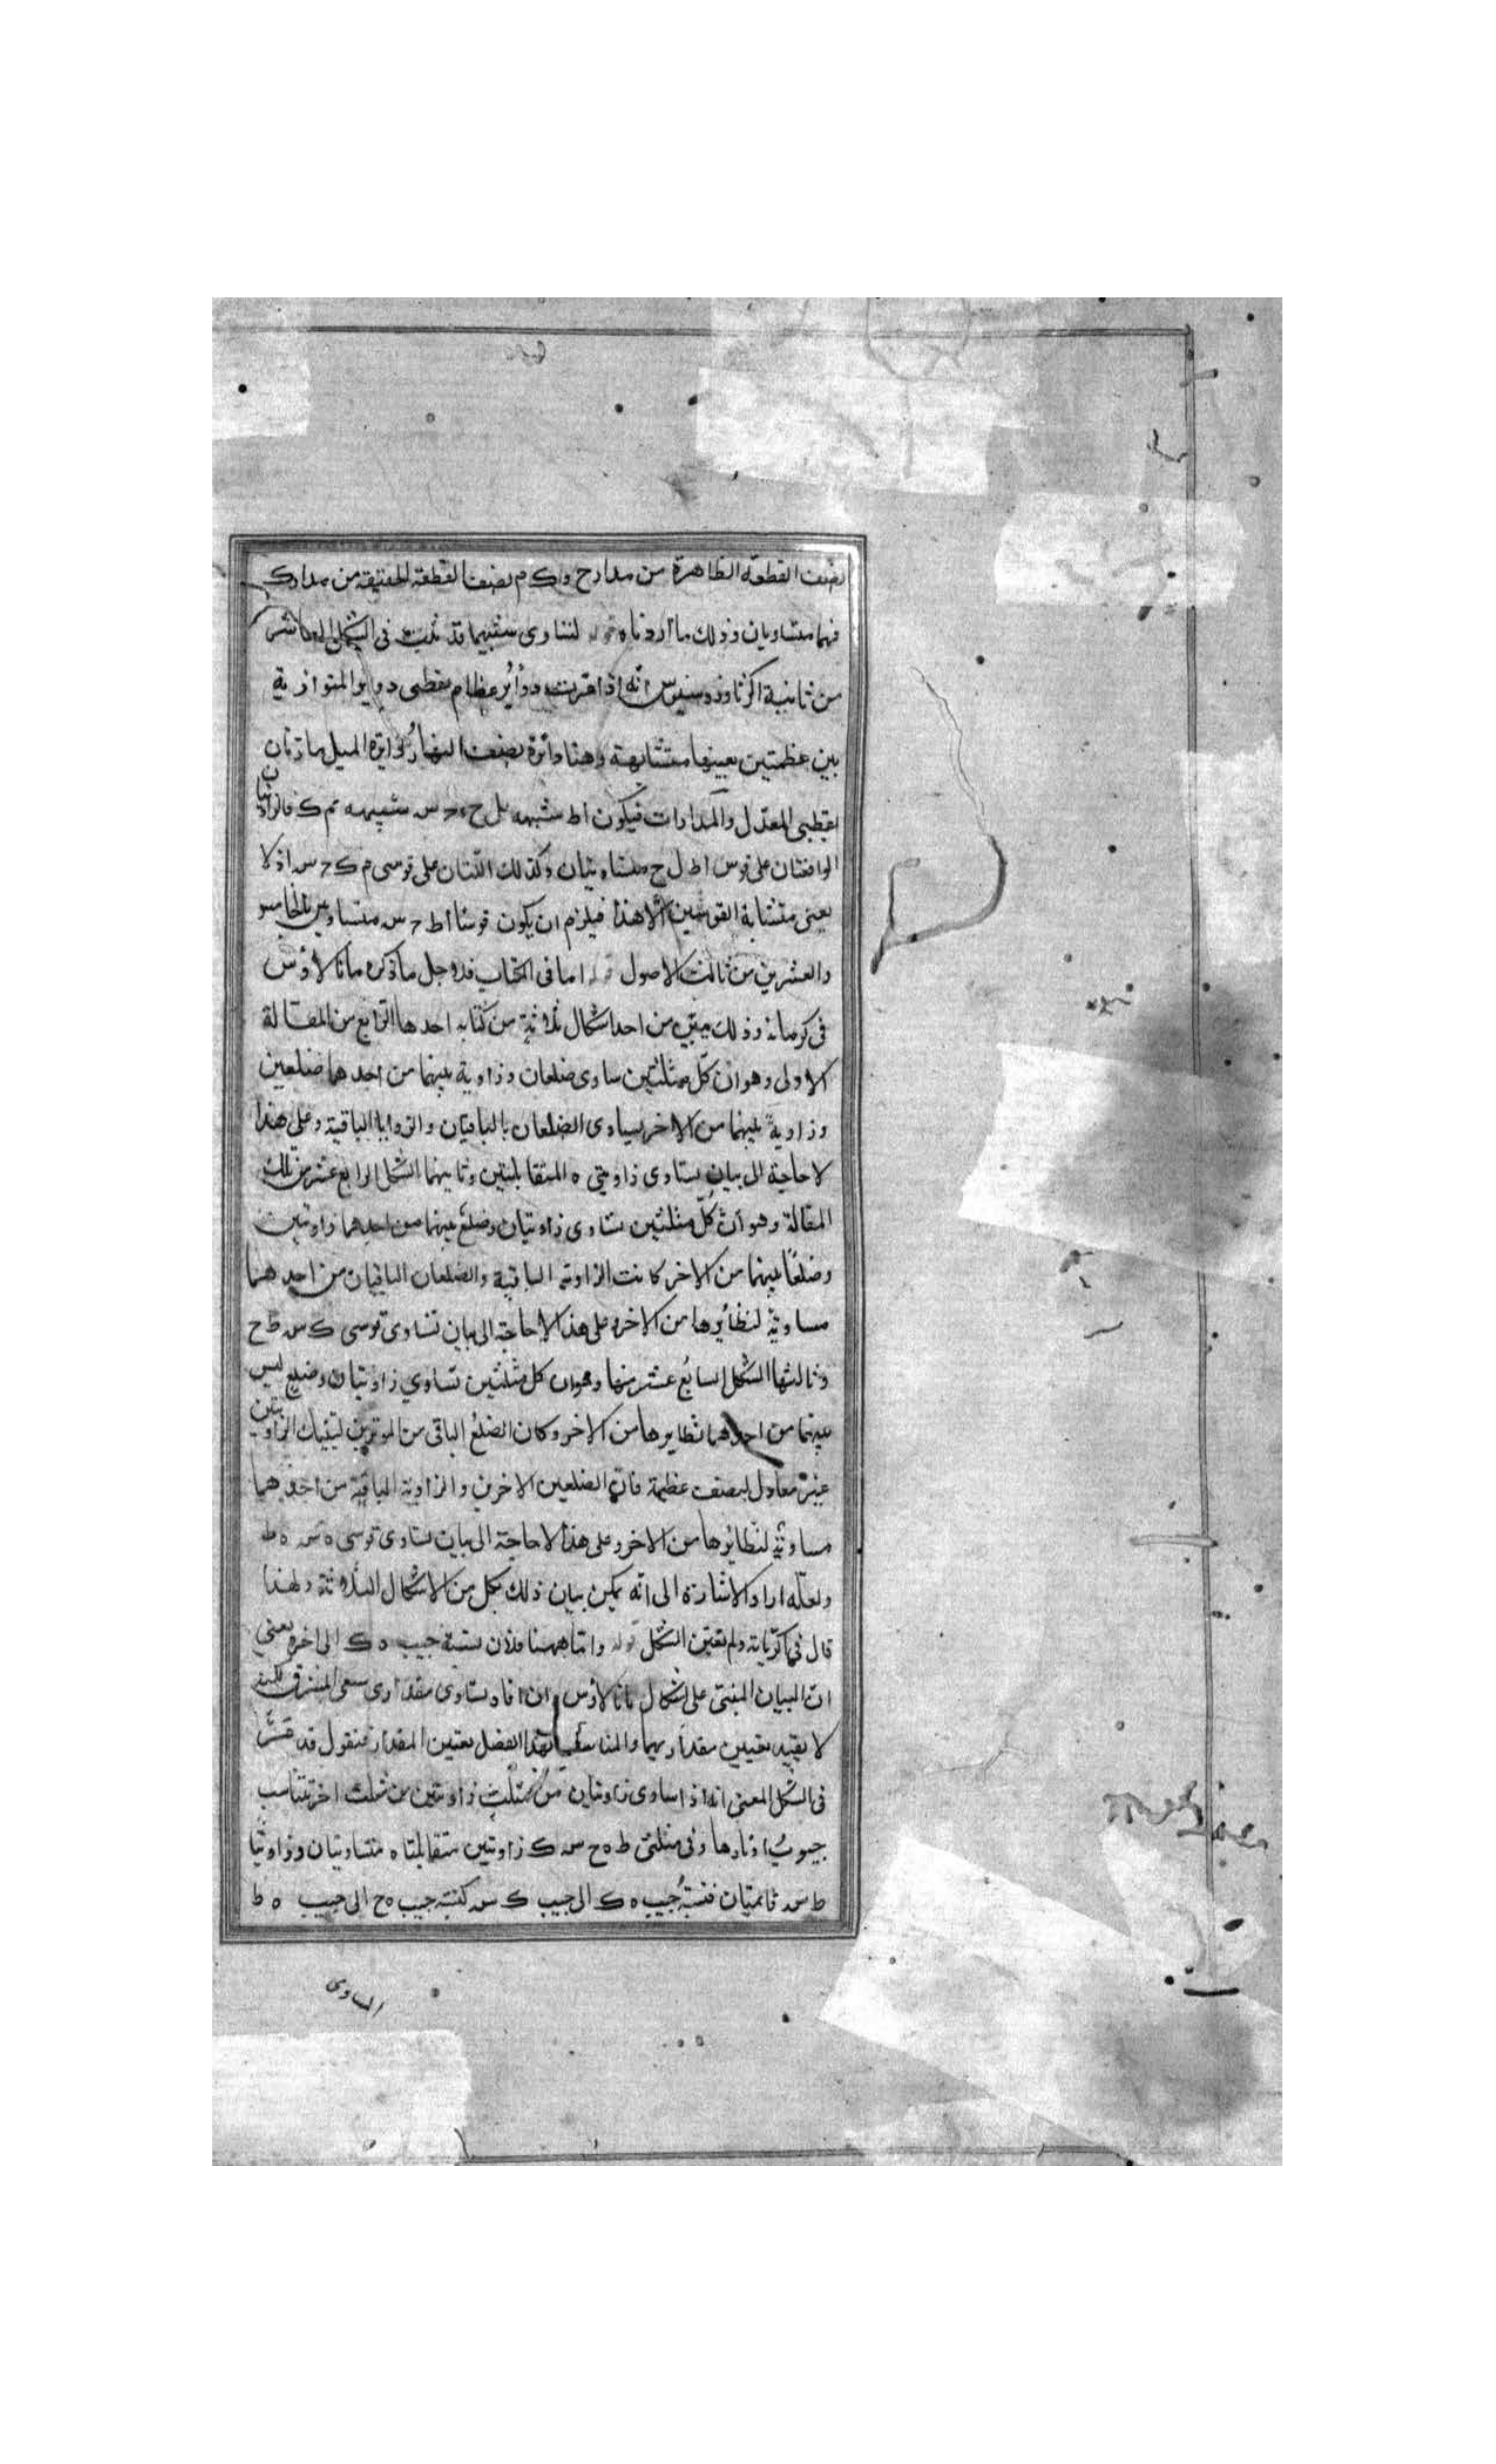 نصف القطعة الظاهرة من مدار ح و ا ك م نصف القطعة الخفية من مدار ك
فهما متساويان وذلك ما اردناه قوله لتساوى شبيهيهما قد ثبت فى الشكل العاشر
من ثانية اكرثاوذوسيوس انه اذا مرت دوائر عظام بقطبى دواير المتوازية
بين عظمتين بعينها متشابهة وهنا دائرة نصف النهار ودايرة الميل مارتان
بقطبى المعدل والمدارات فيكون ا ط شبيهه بل ح و ح س شبيهه م ك فالزاويتان
الواقعتان على قوس ا ط ل ح متساويتان وكذلك اللتان على قوسى م ك ح س اذ لا
يعنى متشابة القوسين الا هذا فيلزم ان يكون قوسا ا ط ح س متساويين بالخامس
والعشرين من ثالث الاصول قوله اما فى الكتاب فلاجل ما ذكره مانالاوس
فى كرياته وذلك يتبين من احد اشكال ثلاثة من كتابه احدها الرابع من المقالة
الاولى وهو ان كل مثلثين ساوى ضلعان وزاوية بينهما من احدهما ضلعين
وزاوية بينهما من الاخر يساوى الضلعان بالباقيان والزوايا الباقية وعلى هذا
لا حاجة الى بيان تساوى زاويتى ه المتقابلتين وثانيهما الشكل الرابع عشر من تلك
المقالة وهو ان كل مثلثين تساوى زاويتان وضلع بينهما من احدهما زاويتين
وضلعا بينهما من الاخر كانت الزاوية الباقية والضلعان الباقيان من احدهما
مساوية لنظايرها من الاخر وعلى هذا لا حاجة الى بيان تساوى قوسى ك س ط ح
وثالثها الشكل السابع عشر منها وهو ان كل مثلثين تساوي زاويتان وضلع ليس
بينهما من احدهما نظايرها من الاخر وكان الضلع الباقى من الموترين لتينك الزاويتين
غير معادل لنصف عظيمة فان الضلعين الاخرين والزاوية الباقية من احدهما
مساوية لنظايرها من الاخر وعلى هذا لا حاجة الى بيان تساوى قوسى ه س ه ط
ولعله اراد الاشارة الى انه يمكن بيان ذلك بكل من الاشكال الثلاثة ولهذا
قال فى كرياته ولم يعين الشكل قوله واما ههنا فلان نسبة جيب ه ك الى اخره يعني
ان البيان المبنى على اشكال مانالاوس وان افاد تساوى مقدارى سعى المشرق لكنه
لا يفيد تعيين مقداريهما والمناسب لهذا الفصل تعيين المقدار فنقول قد
فى الشكل المعنى انه اذا ساوى زاويتان من مثلث زاويتين من مثلث اخر تناسب
جيوب اوتارها وفى مثلثى ط ه ح س ك زاويتين متقابلتا ه متساويتان وزاويتا
ط س قائمتان فنسبة جيب ه ك الى جيب ك س كنسبة جيب ه ح الى جيب ه ط
المساوى